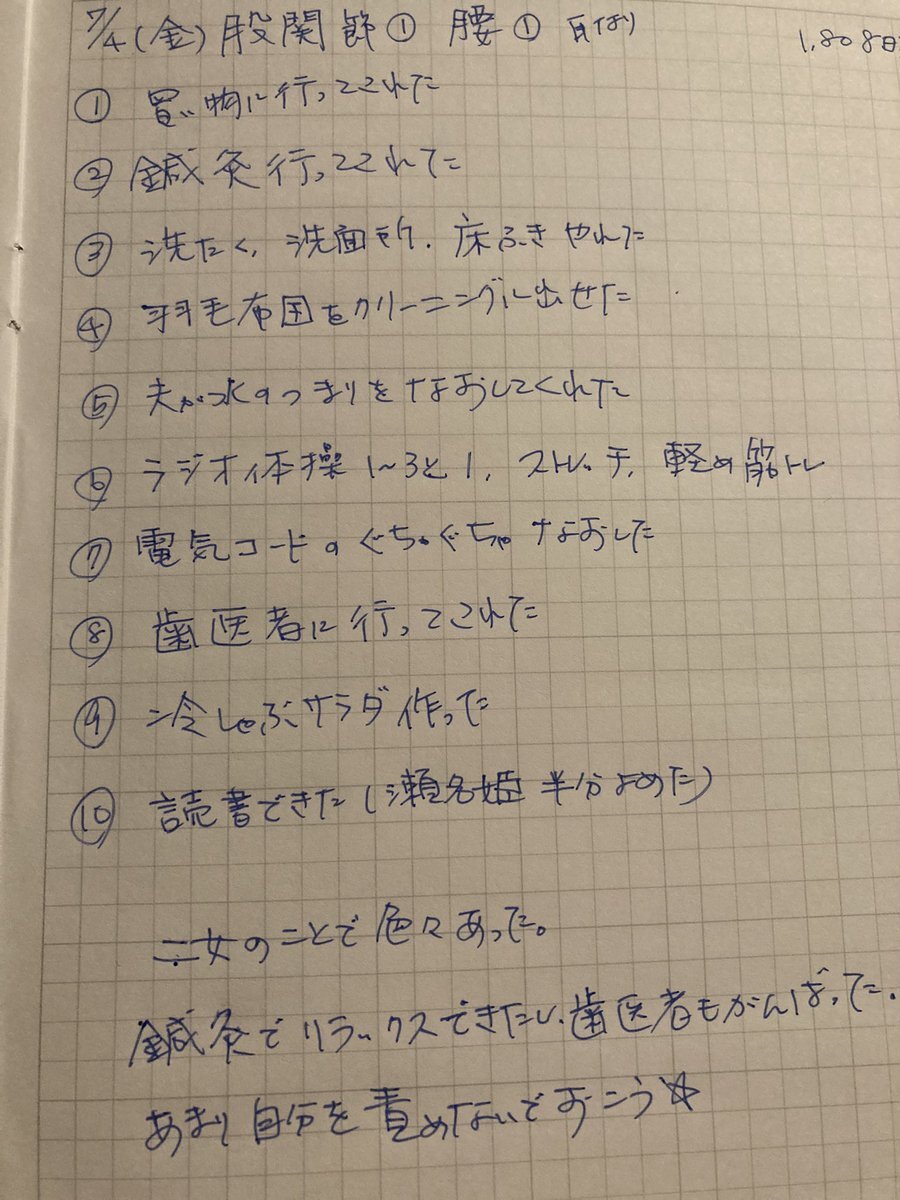 7/4(金) 股関節① 腰① 頁なり 1,808日
① 買い物に行ってこれた
② 鍼灸行ってこれた
③ 洗たく、洗面所、床ふきやれた
④ 羽毛布団をクリーニングに出せた
⑤ 夫が水のつまりをなおしてくれた
⑥ ラジオ体操1~3と1、ストレッチ、軽め筋トレ
⑦ 電気コードのぐちゃぐちゃなおした
⑧ 歯医者に行ってこれた
⑨ 冷しゃぶサラダ作った
⑩ 読書できた(瀬名姫 半分よめた)
二女のことで色々あった。
鍼灸でリラックスできたし、歯医者もがんばった。
あまり自分を責めないでおこう☆